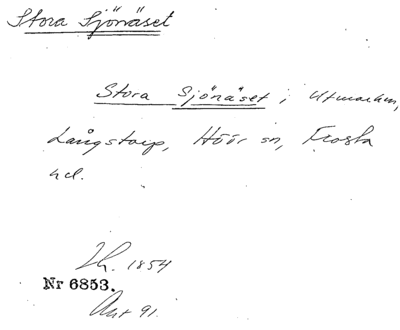 Stora Sjönäset
Stora Sjönäset i Utmarken,
Långstorp, Höör sn, Frosta
hd.
Lh. 1854
Nr 6853.
Akt 91.